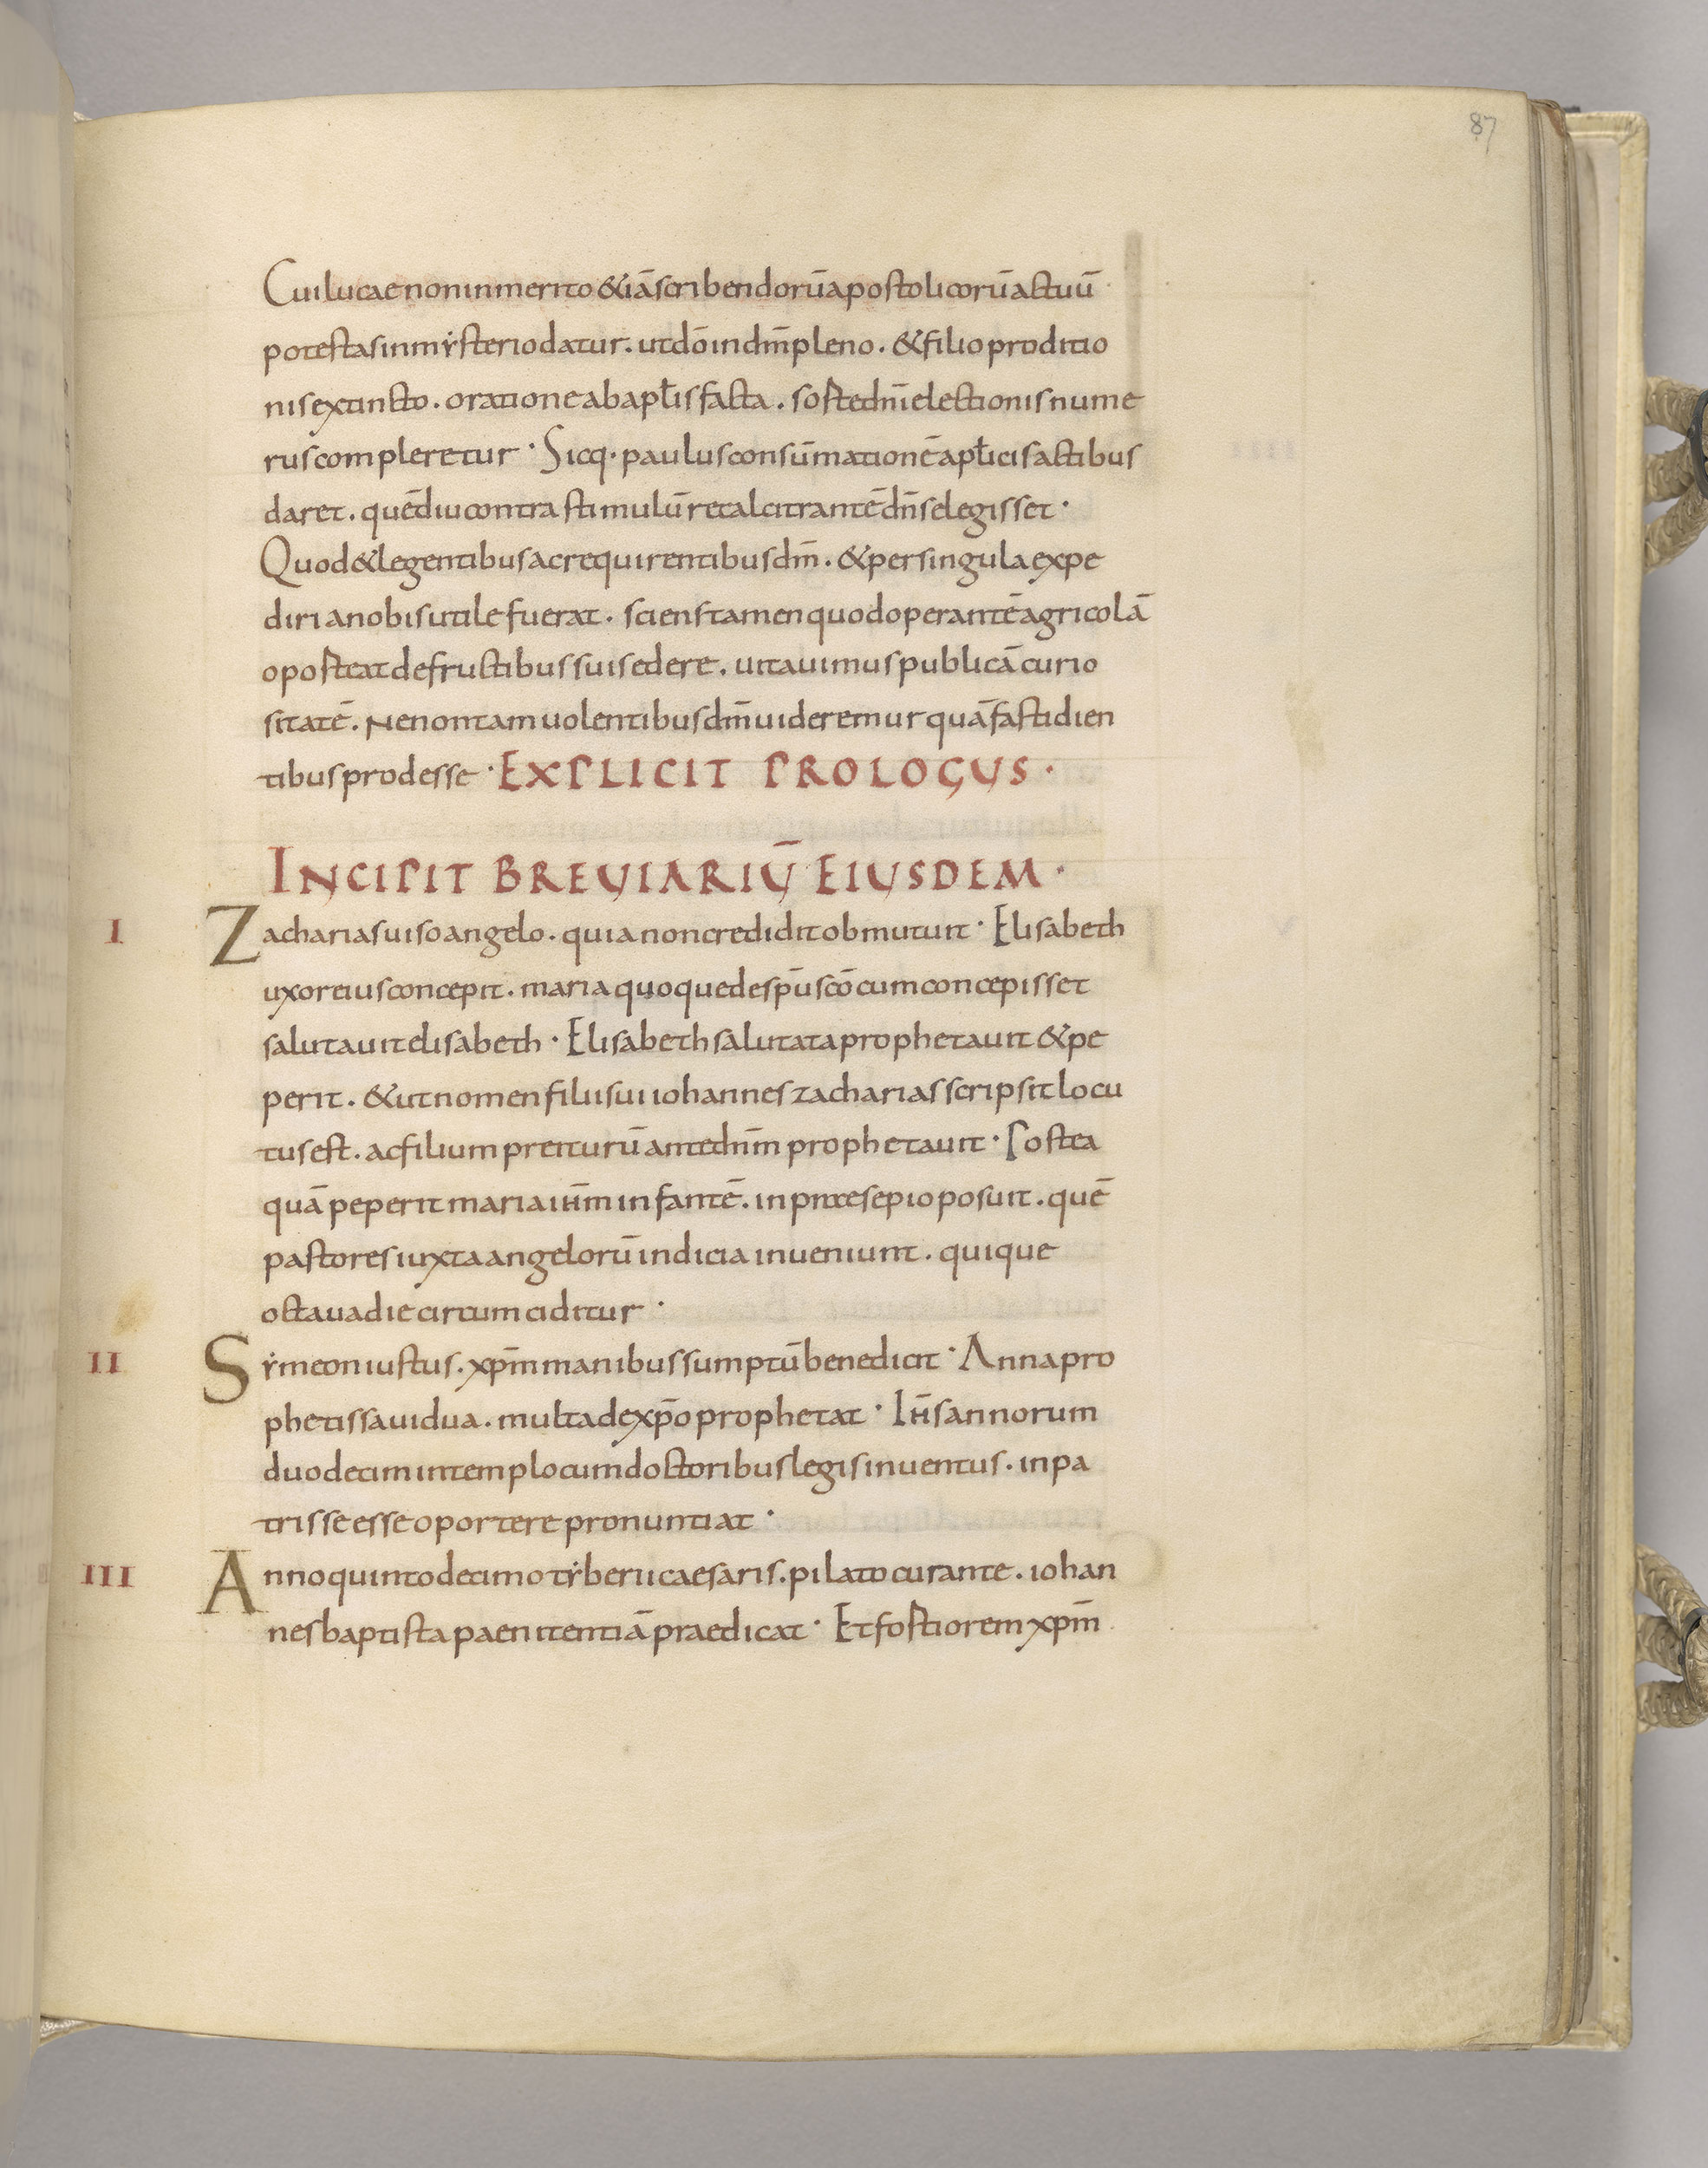 87
Cui lucae non inmerito & iā scribendorū apostolicorū actuū
potestas in mẏsterio datur. ut dō in dm̄ pleno. & filio proditio
nis extincto. oratione ab apƚis facta. sorte dn̄i electionis nume
rus compleretur · Sicq· paulus consūmationē apƚicis actibus
daret. quē diu contra stimulū recalcitrantē dn̄s elegisset ·
Quod & legentibus ac requirentibus dm̄. & per singula expe
diri a nobis utile fuerat. sciens tamen quod operantē agricolā
oporteat de fructibus suis edere. uitauimus publicā curio
sitatē. Ne non tam uolentibus dm̄ uideremur quā fastidien
tibus prodesse · EXPLICIT PROLOGUS ·
INCIPIT BREUIARIŪ EIUSDEM ·
I Zacharias uiso angelo. quia non credidit obmutuit · Elisabeth
uxor eius concepit. maria quoque de sp̄u scō cum concepisset
salutauit elisabeth · Elisabeth salutata prophetauit & pe
perit. & ut nomen filii sui iohannes zacharias scripsit locu
tus est. ac filium preiturū ante dn̄m prophetauit · Postea
quā peperit maria ih̄m infantē. in praesepio posuit. quē
pastores iuxta angelorū indicia inueniunt. quique
octaua die circumciditur ·
II Sẏmeon iustus. xp̄m manibus sumptū benedicit · Anna pro
phetissa uidua. multa de xp̄o prophetat · Ih̄s annorum
duodecim in templo cum doctoribus legis inuentus. in pa
tris se esse oportere pronuntiat ·
III Anno quinto decimo tẏberii caesaris. pilato curante. iohan
nes baptista paenitentiā praedicat · Et fortiorem xp̄m